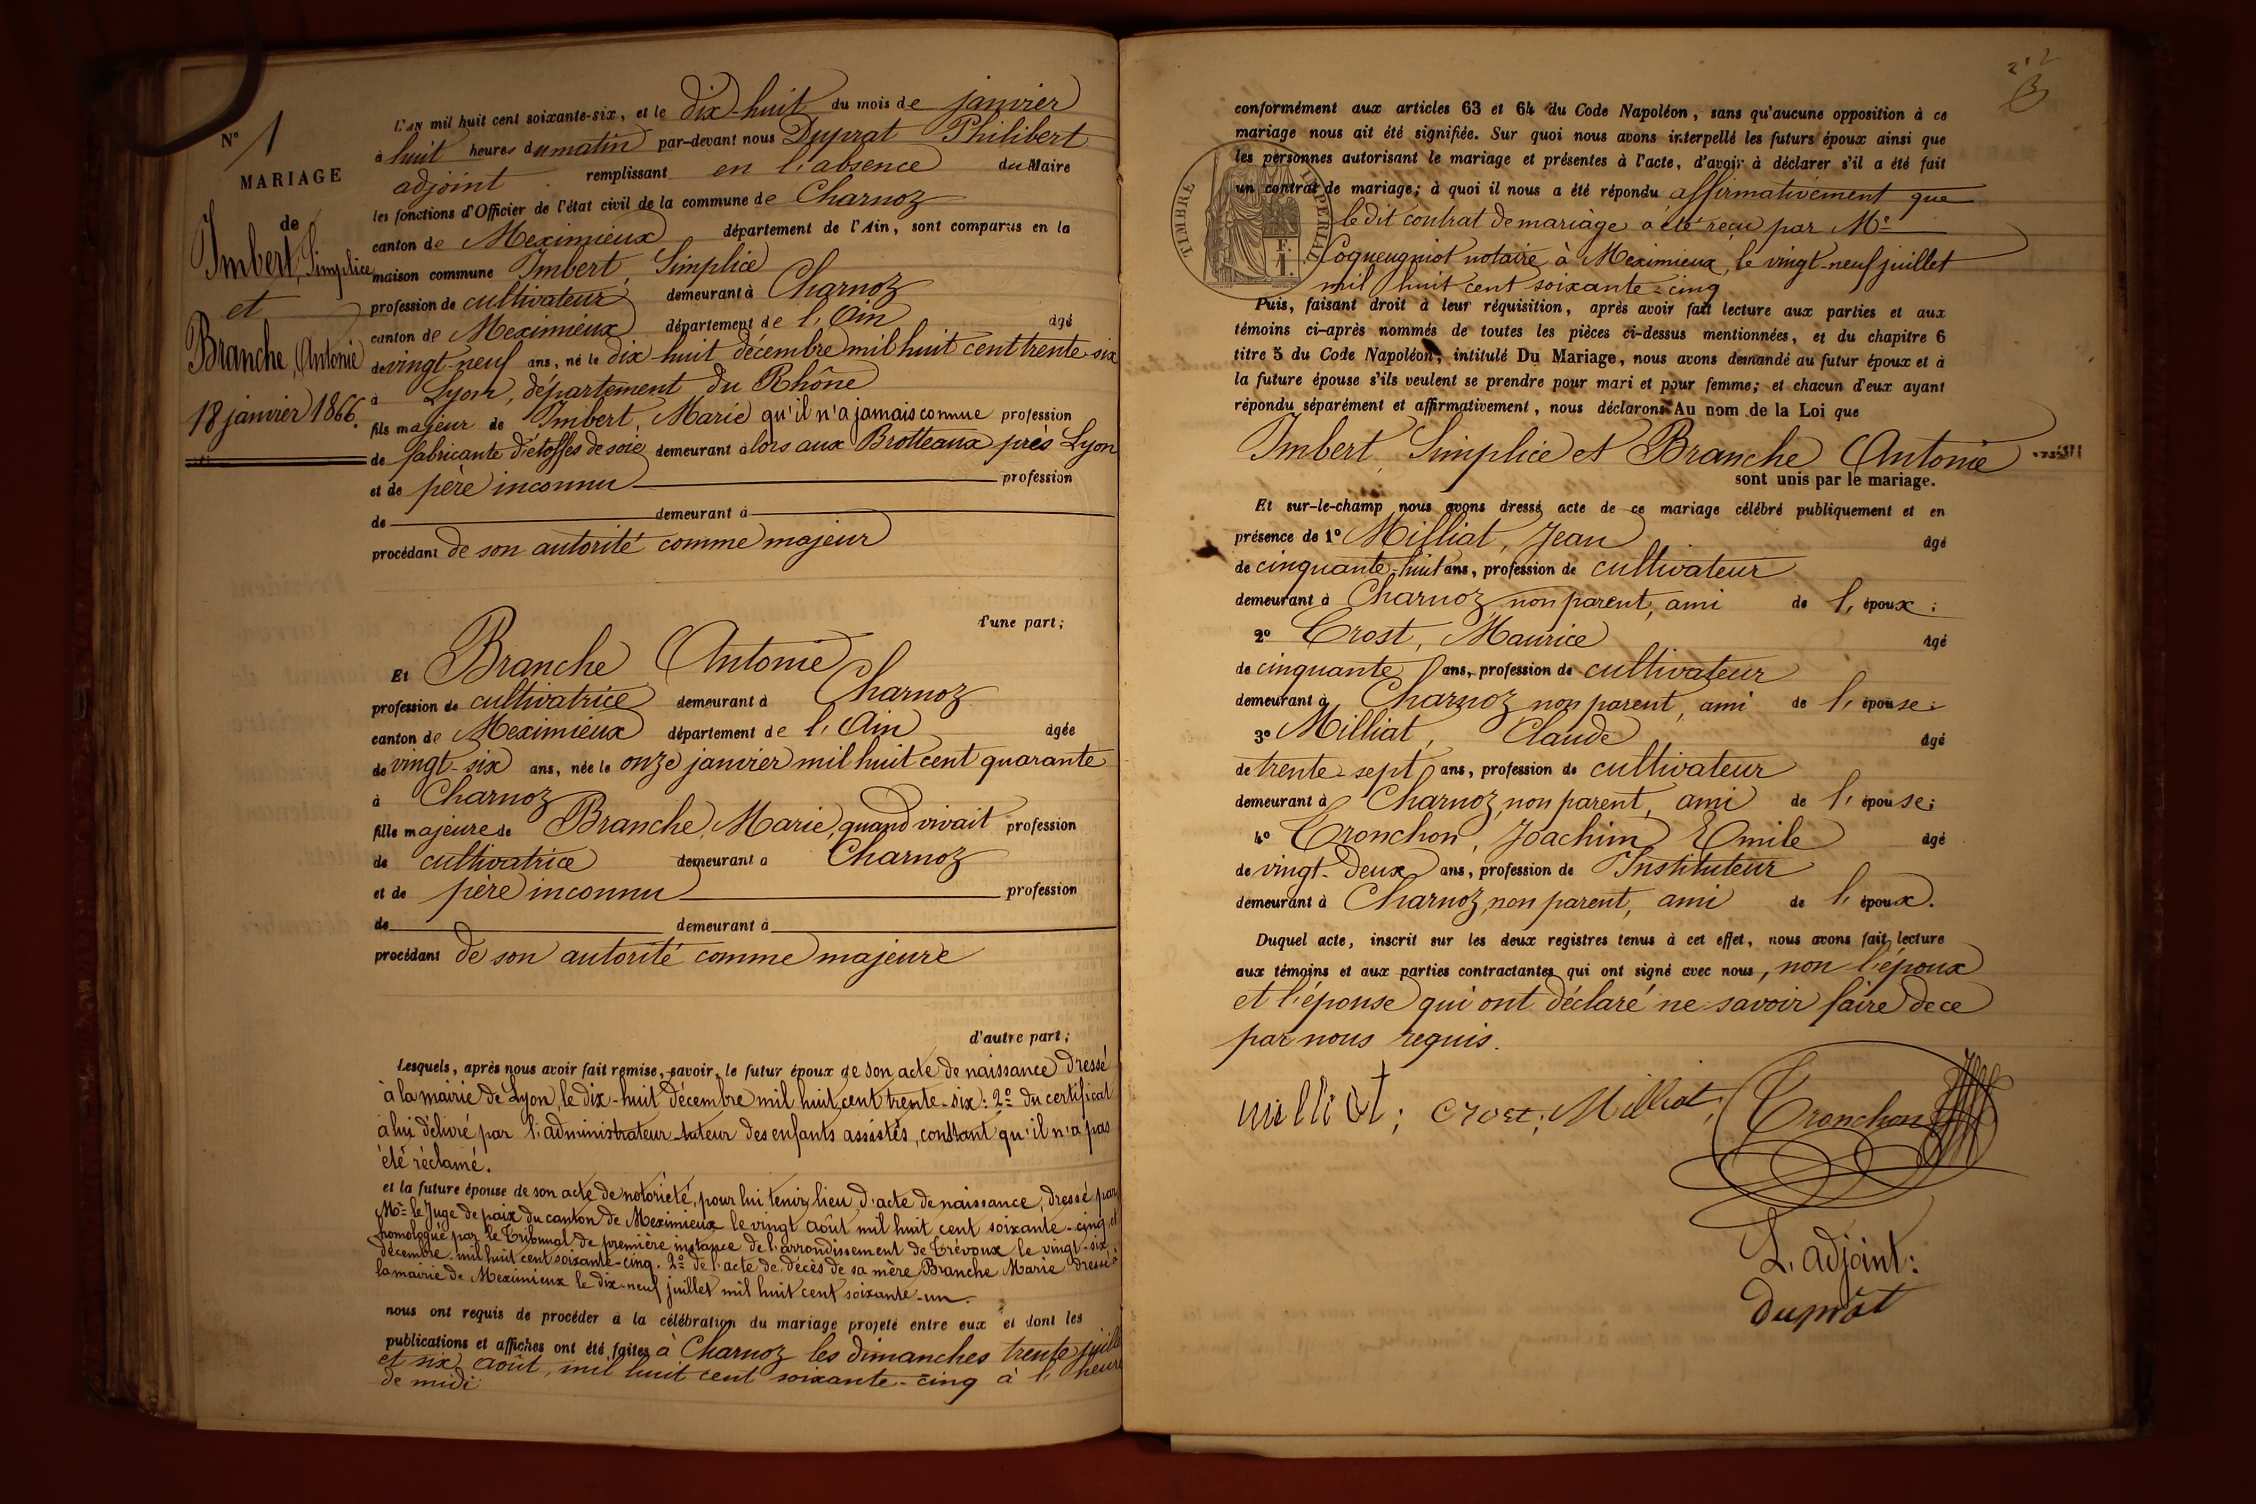 N° 1
MARIAGE
de
Imbert, Simplice
et
Branche, Antonie
18 janvier 1866.
L'AN mil huit cent soixante-six, et le dix-huit du mois de janvier
à huit heures du matin par-devant nous Duprat Philibert
adjoint remplissant en l'absence du Maire
les fonctions d'Officier de l'état civil de la commune de Charnoz
canton de Meximieux département de l'Ain, sont comparus en la
maison commune Imbert, Simplice
profession de cultivateur demeurant à Charnoz
canton de Meximieux département de l'Ain âgé
de vingt-neuf ans, né le dix-huit décembre mil huit cent trente-six
à Lyon, département du Rhône
fils majeur de Imbert, Marie qu'il n'a jamais connue profession
de fabricante d'étoffes de soie demeurant alors aux Brotteaux près Lyon
et de père inconnu profession
de demeurant à
procédant de son autorité comme majeur
d'une part;
Et Branche Antonie
profession de cultivatrice demeurant à Charnoz
canton de Meximieux département de l'Ain âgée
de vingt-six ans, née le onze janvier mil huit cent quarante
à Charnoz
fille majeure de Branche, Marie, quand vivait profession
de cultivatrice demeurant à Charnoz
et de père inconnu profession
de demeurant à
procédant de son autorité comme majeure
d'autre part;
Lesquels, après nous avoir fait remise, savoir, le futur époux de son acte de naissance dressé
à la mairie de Lyon, le dix-huit décembre mil huit cent trente-six: 2° du certificat
à lui délivré par l'administrateur-tuteur des enfants assistés, constant qu'il n'a pas
été réclamé.
et la future épouse de son acte de notoriété, pour lui tenir lieu d'acte de naissance, dressé par
Mr le Juge de paix du canton de Meximieux le vingt août mil huit cent soixante-cinq et
homologué par le Tribunal de première instance de l'arrondissement de Trévoux le vingt-six
décembre mil huit cent soixante-cinq. 2° de l'acte de décès de sa mère Branche Marie dressé à
la mairie de Meximieux le dix-neuf juillet mil huit cent soixante-un.
nous ont requis de procéder à la célébration du mariage projeté entre eux et dont les
publications et affiches ont été faites à Charnoz les dimanches trente juillet
et six août, mil huit cent soixante-cinq à l'heure
de midi
conformément aux articles 63 et 64 du Code Napoléon, sans qu'aucune opposition à ce
mariage nous ait été signifiée. Sur quoi nous avons interpellé les futurs époux ainsi que
les personnes autorisant le mariage et présentes à l'acte, d'avoir à déclarer s'il a été fait
un contrat de mariage; à quoi il nous a été répondu affirmativement que
le dit contrat de mariage a été reçu par Me
Coqueugniot notaire à Meximieux, le vingt-neuf juillet
mil huit cent soixante-cinq
TIMBRE IMPERIAL
Puis, faisant droit à leur réquisition, après avoir fait lecture aux parties et aux
témoins ci-après nommés de toutes les pièces ci-dessus mentionnées, et du chapitre 6
titre 5 du Code Napoléon, intitulé Du Mariage, nous avons demandé au futur époux et à
la future épouse s'ils veulent se prendre pour mari et pour femme; et chacun d'eux ayant
répondu séparément et affirmativement, nous déclarons Au nom de la Loi que
Imbert, Simplice et Branche Antonie
sont unis par le mariage.
Et sur-le-champ nous avons dressé acte de ce mariage célébré publiquement et en
présence de 1° Milliat, Jean âgé
de cinquante-huit ans, profession de cultivateur
demeurant à Charnoz, non parent, ami de l'époux;
2° Crost, Maurice âgé
de cinquante ans, profession de cultivateur
demeurant à Charnoz non parent, ami de l'épouse;
3° Milliat, Claude âgé
de trente-sept ans, profession de cultivateur
demeurant à Charnoz, non parent, ami de l'épouse;
4° Tronchon, Joachim Emile âgé
de vingt-deux ans, profession de Instituteur
demeurant à Charnoz, non parent, ami de l'époux.
Duquel acte, inscrit sur les deux registres tenus à cet effet, nous avons fait lecture
aux témoins et aux parties contractantes qui ont signé avec nous, non l'époux
et l'épouse qui ont déclaré ne savoir faire de ce
par nous requis.
milliat; crost; Milliat; Tronchon
L'adjoint:
duprât